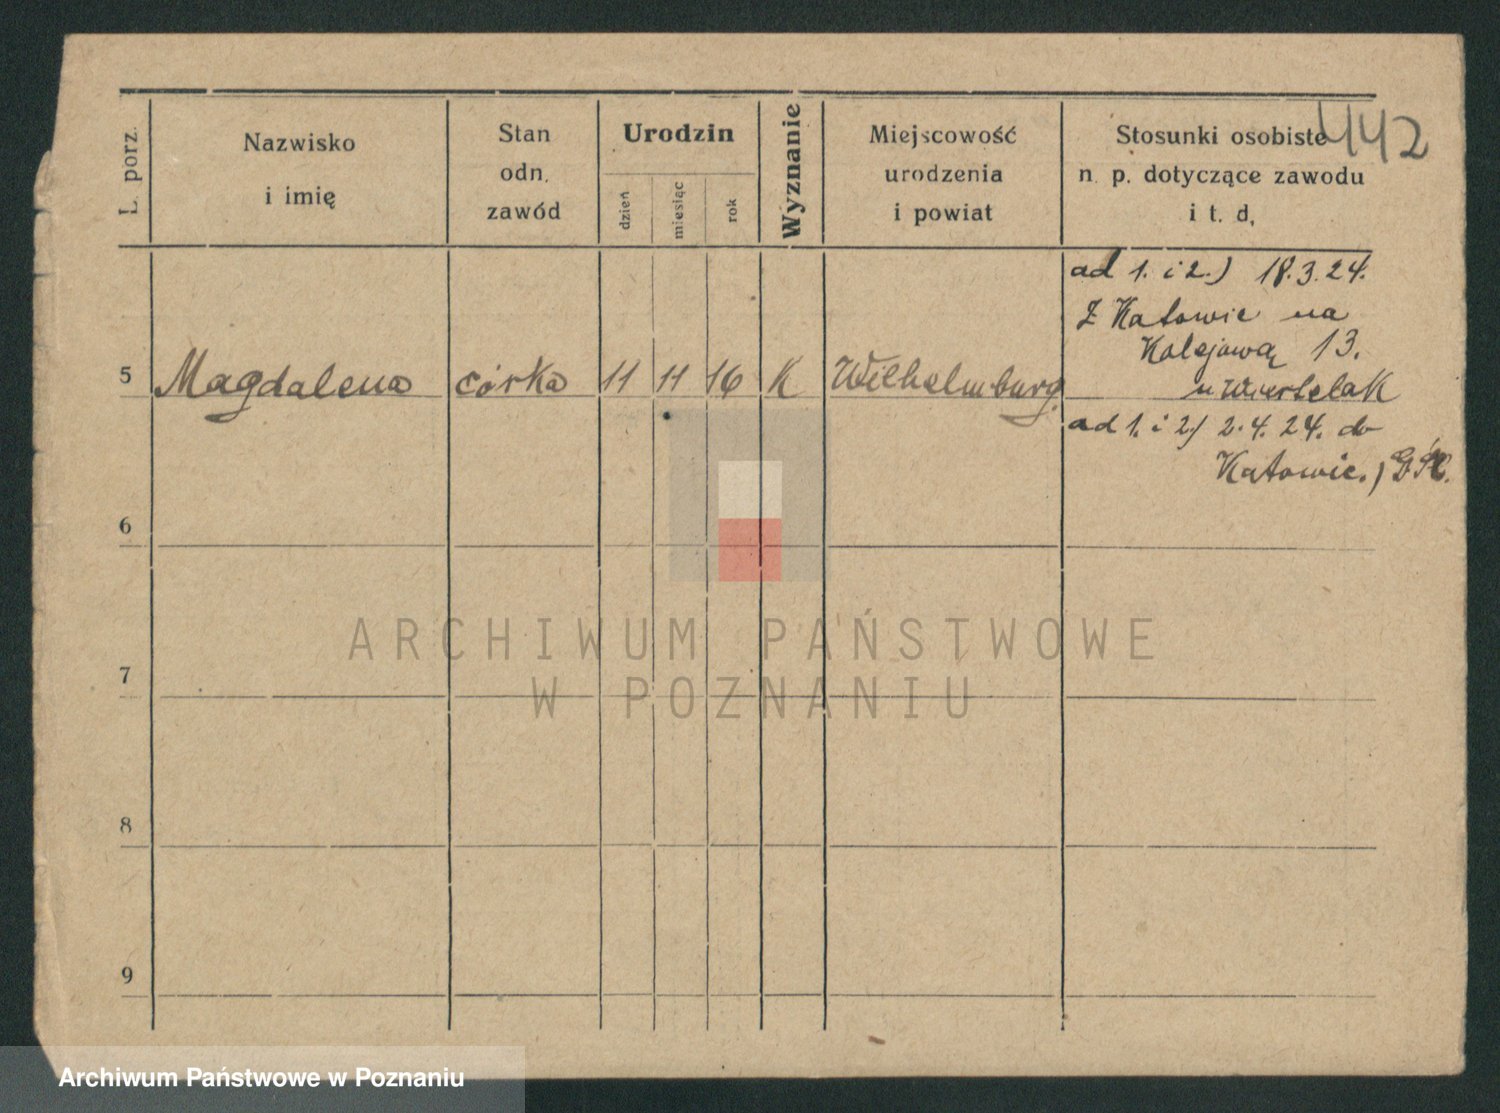 442
L. porz.
Nazwisko
i imię
Stan
odn.
zawód
Urodzin
dzień
miesiąc
rok
Wyznanie
Miejscowość
urodzenia
i powiat
Stosunki osobiste
n. p. dotyczące zawodu
i t. d,
ad 1. i 2.) 18.3.24.
Z Katowic na
Kolejową 13.
5 Magdalena córka 11 11 16 K Wilhelmburg
u Wiertelak
ad 1. i 2.) 2.4.24. do
Katowic.) G.Śl.
6
7
8
9
ARCHIWUM PAŃSTWOWE
W POZNANIU
Archiwum Państwowe w Poznaniu